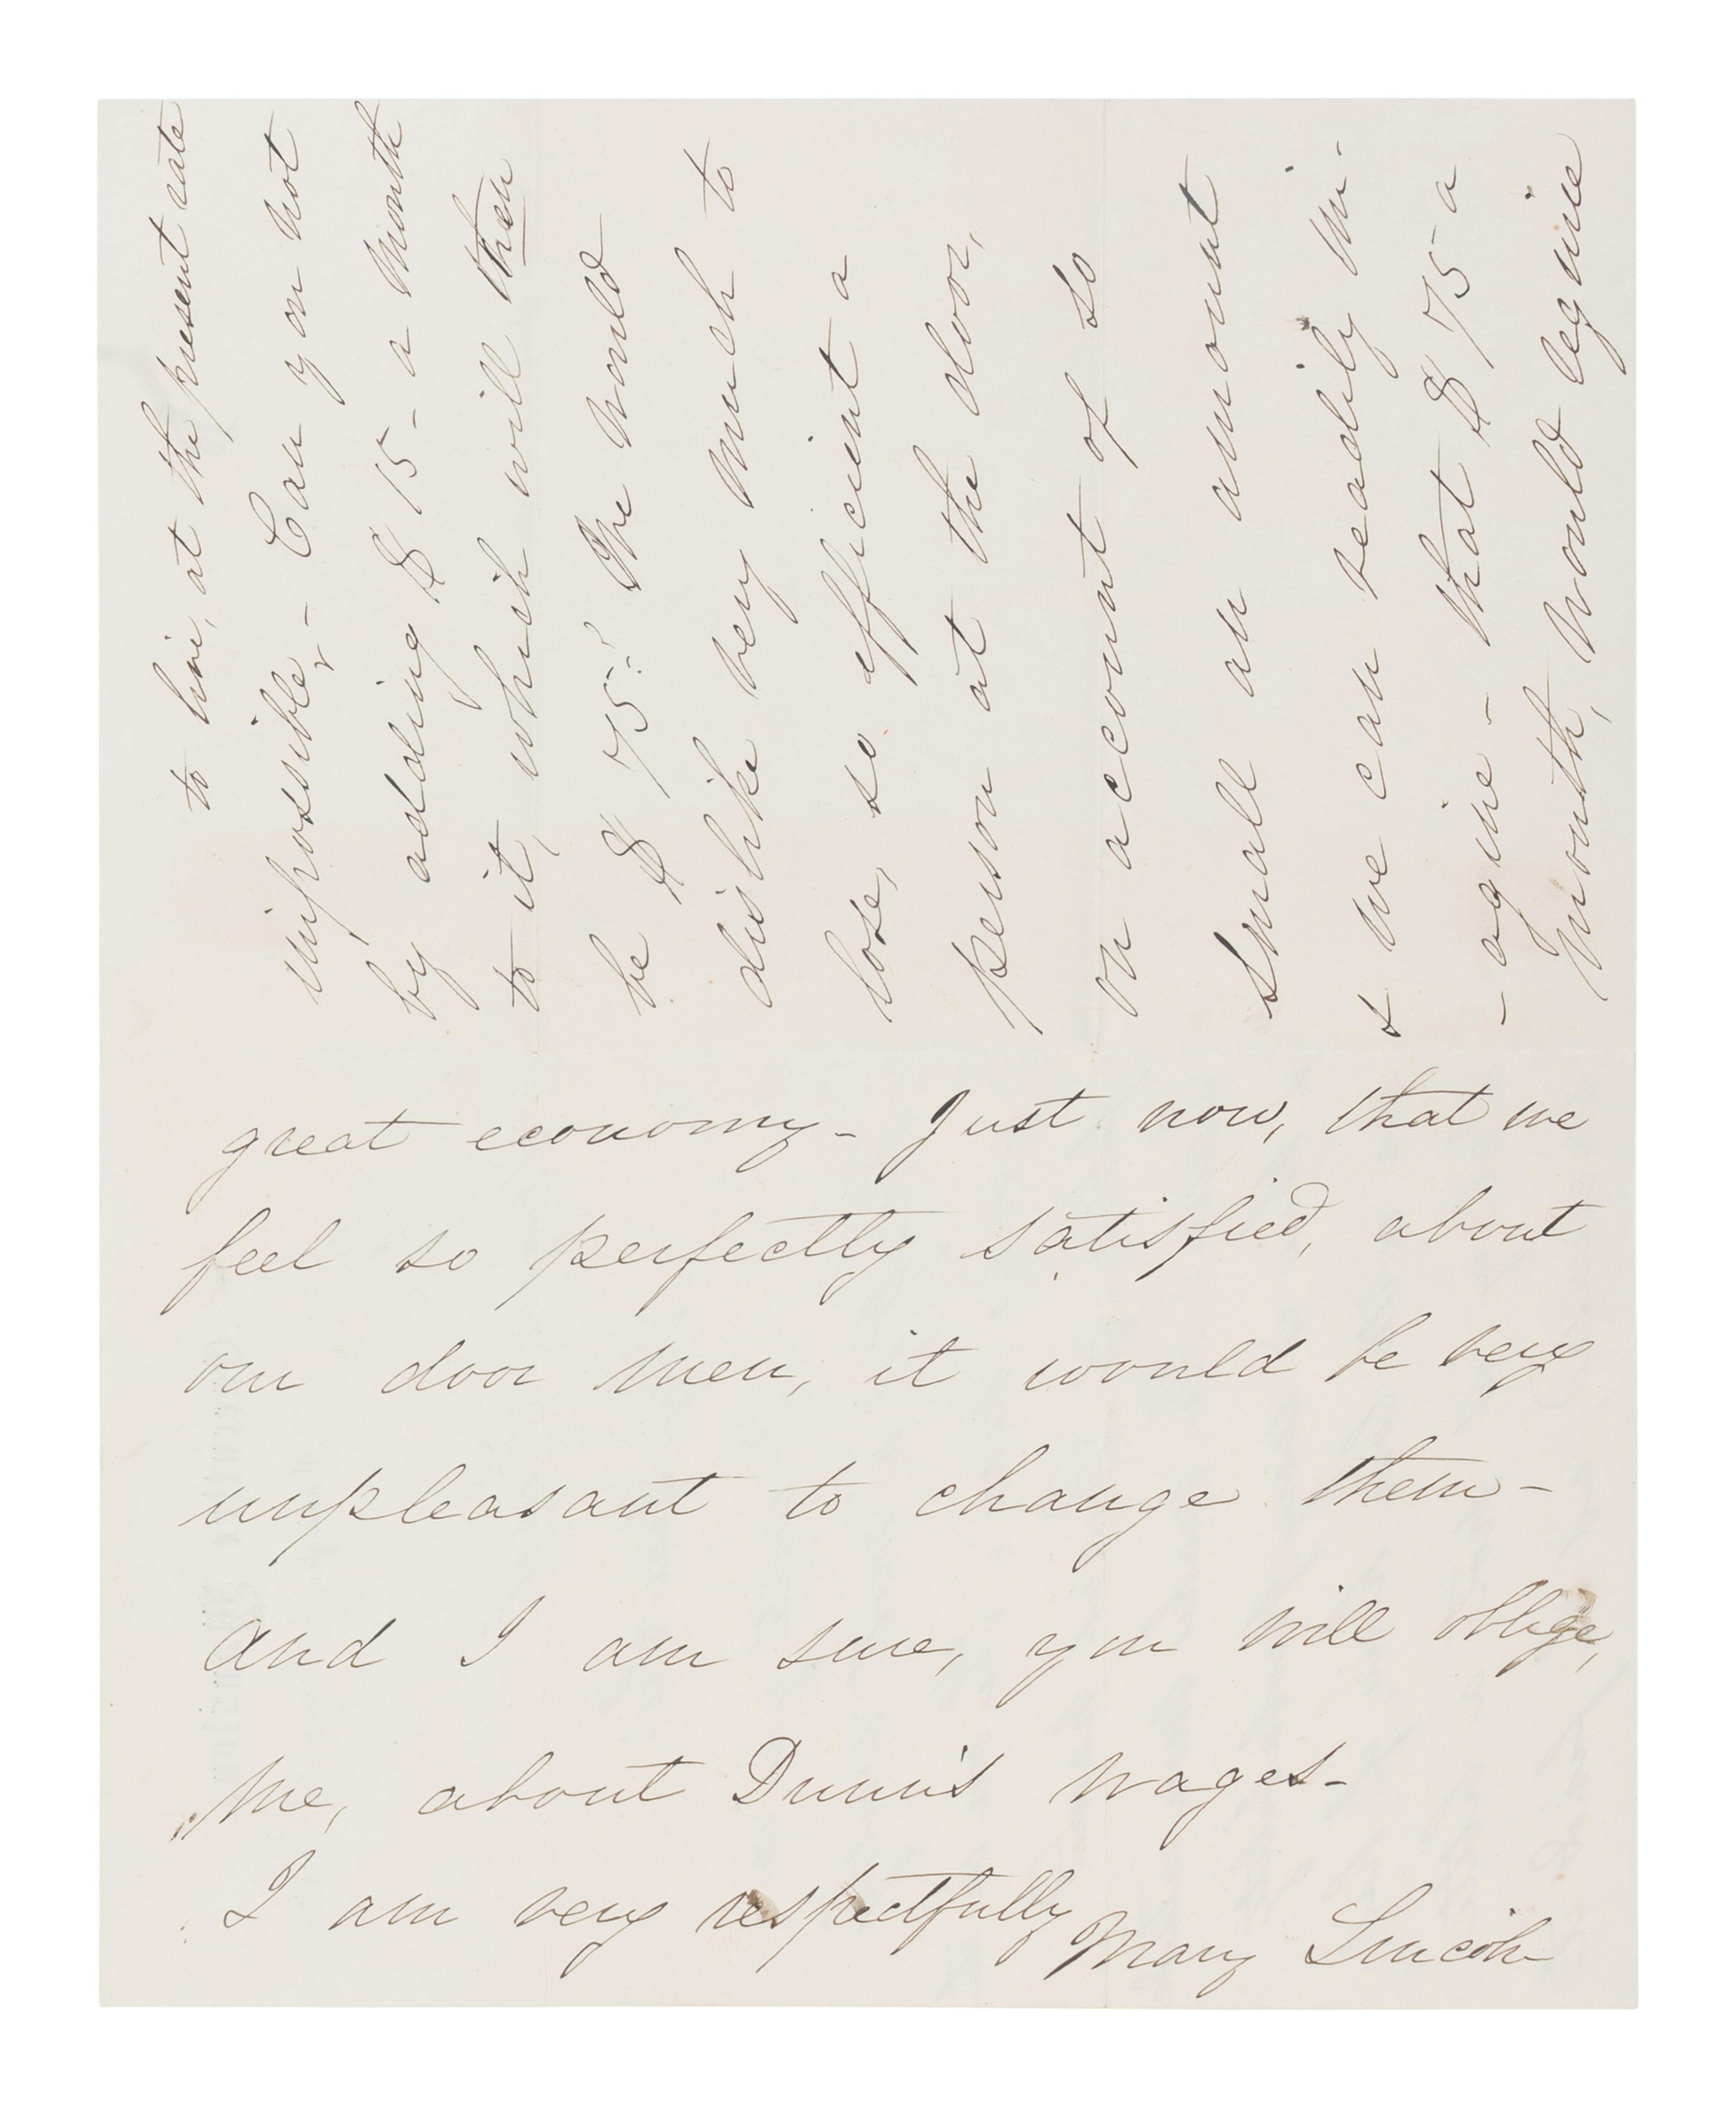 to live, at the present rate
impossible, - Can you not
by adding $15 - a month
to it, which will then
be $75.? We would
dislike very much to
lose, so efficient a
person at the door,
on account of so
small an amount
& we can readily im-
- agine - that $75 a
month, would require
great economy - Just now, that we
feel so perfectly satisfied, about
our door men, it would be very
unpleasant to change them -
and I am sure, you will oblige,
me, about Dunn's wages -
I am very respectfully
Mary Lincoln